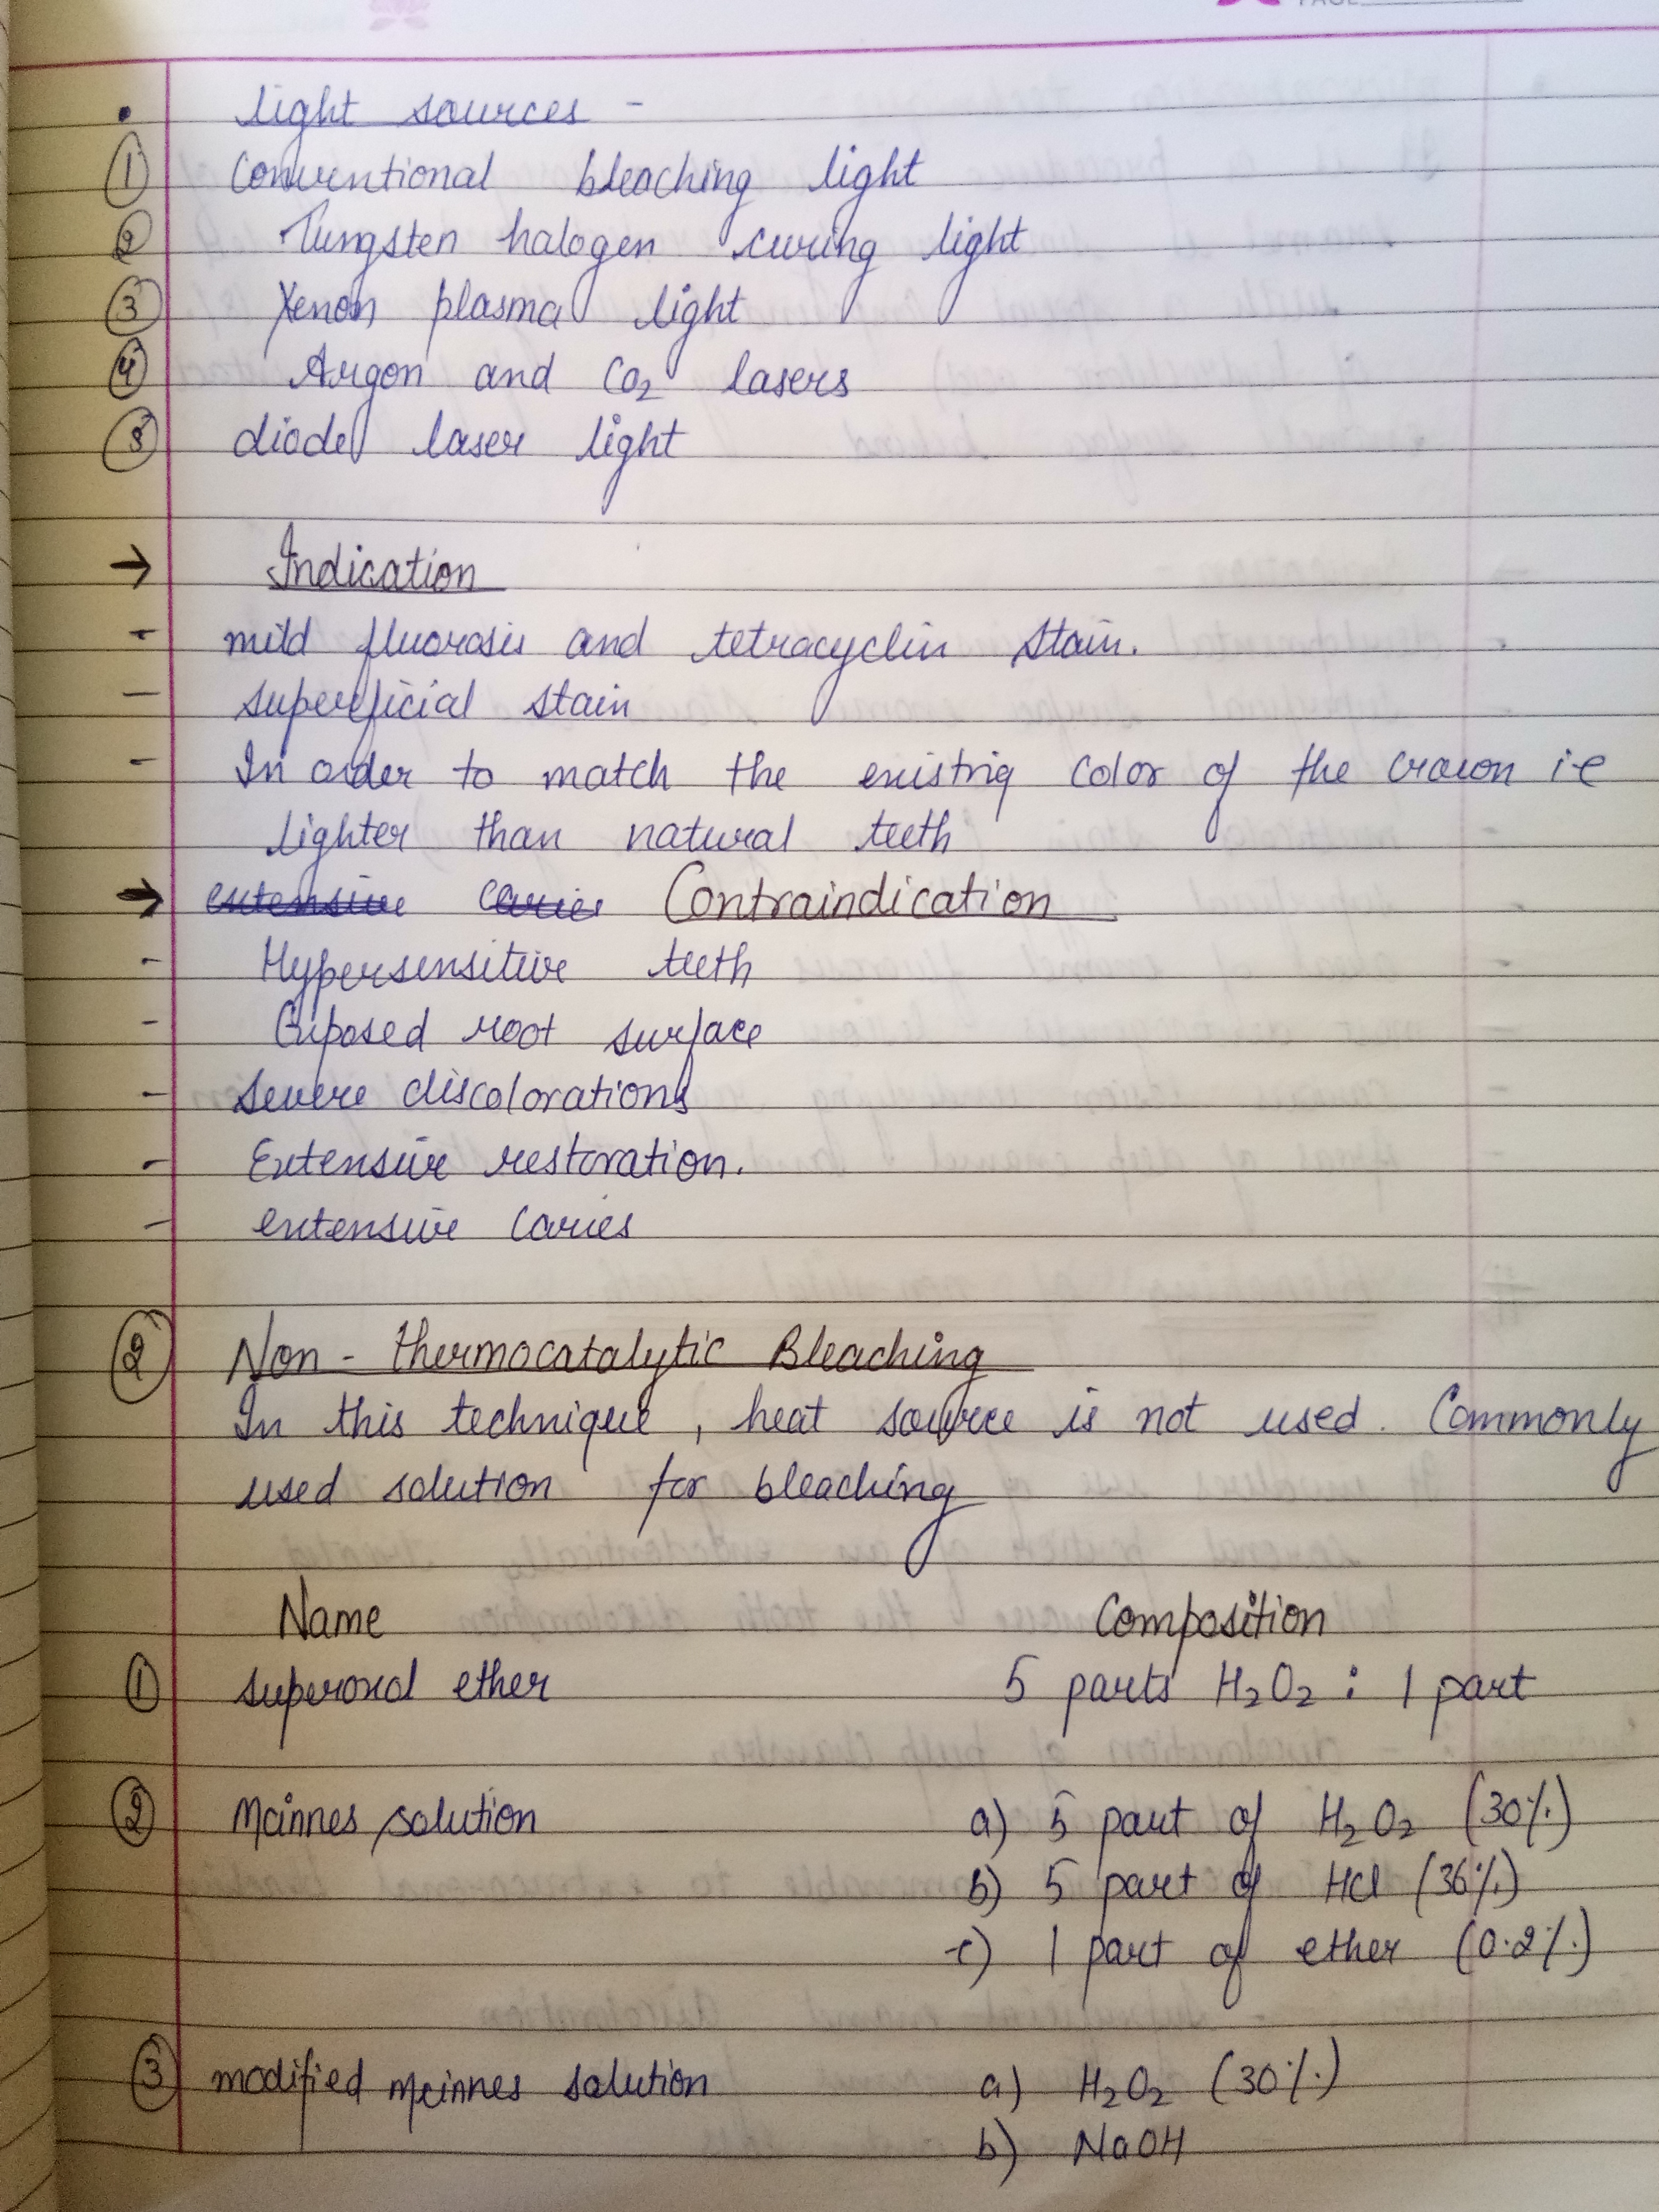 PAGE
• light sources -
① Conventional bleaching light
② Tungsten halogen curing light
③ Xenon plasma light
④ Argon and CO₂ lasers
⑤ diode laser light
→ Indication
- mild fluorosis and tetracyclin stain.
- superficial stain
- In order to match the existing color of the crown i.e
lighter than natural teeth
→ extensive caries Contraindication
- Hypersensitive teeth
- Exposed root surface
- severe discolorations
- Extensive restoration.
- extensive caries
② Non-thermocatalytic Bleaching
In this technique, heat source is not used. Commonly
used solution for bleaching
Name Composition
① superoxol ether 5 parts H₂O₂ : 1 part
② Mcinnes solution a) 5 part of H₂O₂ (30%)
b) 5 part of HCl (36%)
c) 1 part of ether (0.2%)
③ modified Mcinnes solution a) H₂O₂ (30%)
b) NaOH